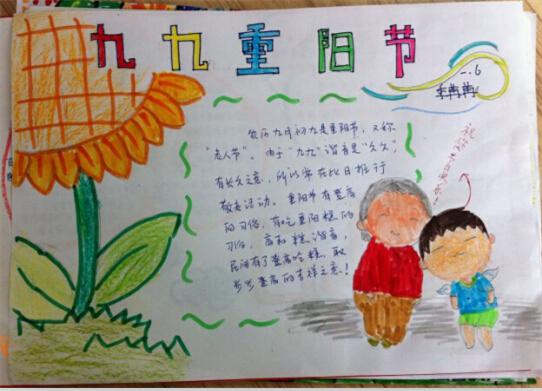 九九重阳节
一.6
农历九月初九是重阳节，又称
"老人节"。由于"九九"谐音是"久久"，
有长久之意，所以常在此日推行
敬老活动。重阳节有登高
的习俗，有吃重阳糕的
习俗，高和糕谐音，
民间有了登高吃糕，取
步步登高的吉祥之意！